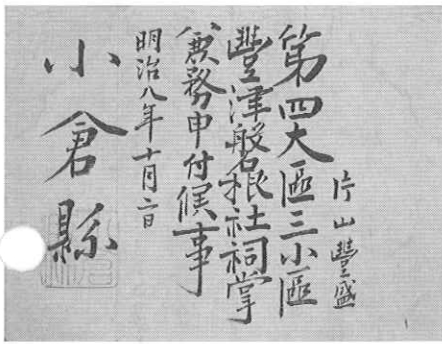 片山豐盛
第四大區三小區
豐津磐根社祠掌
兼務申付候事
明治八年十月二日
小倉縣